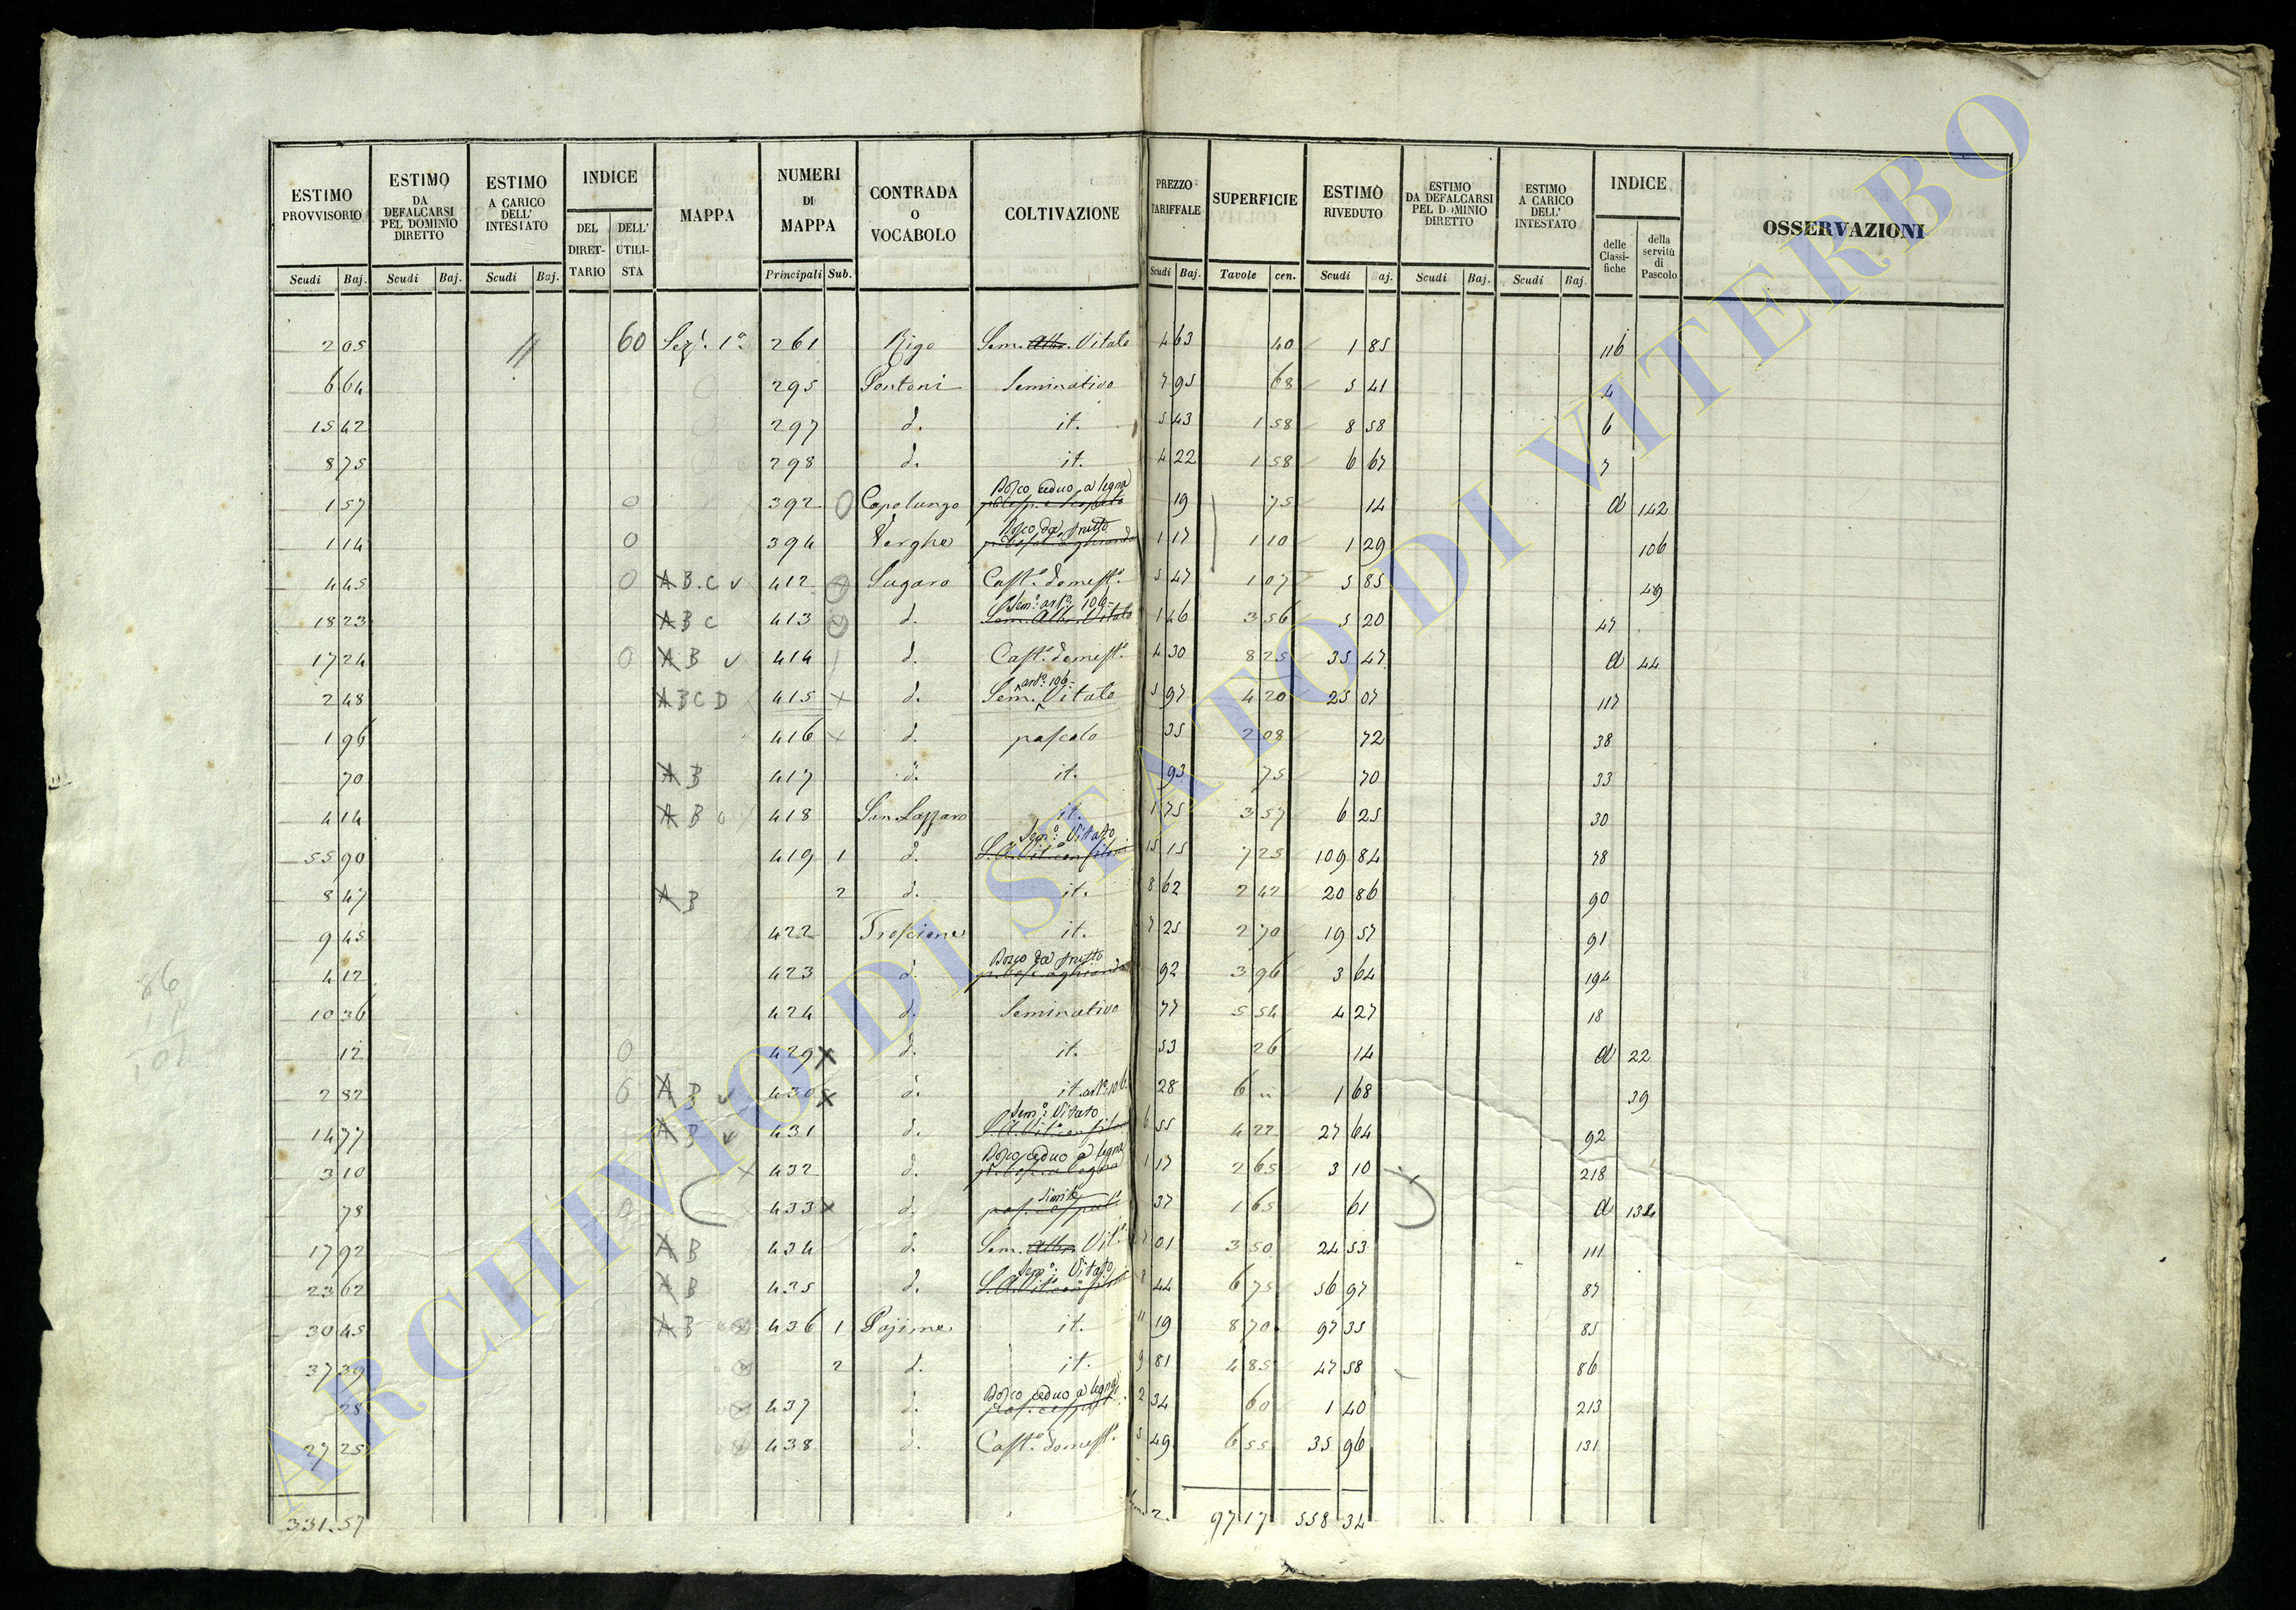 ESTIMO PROVVISORIO | ESTIMO DA DEFALCARSI PEL DOMINIO DIRETTO | ESTIMO A CARICO DELL' INTESTATO | INDICE | MAPPA | NUMERI DI MAPPA | CONTRADA O VOCABOLO | COLTIVAZIONE | PREZZO TARIFFALE | SUPERFICIE | ESTIMO RIVEDUTO | ESTIMO DA DEFALCARSI PEL DOMINIO DIRETTO | ESTIMO A CARICO DELL' INTESTATO | INDICE | OSSERVAZIONI
DEL DIRET-TARIO | DELL' UTILI-STA | delle Classi-fiche | della servitù di Pascolo
Scudi | Baj. | Scudi | Baj. | Scudi | Baj. | Principali | Sub. | Scudi | Baj. | Tavole | cen. | Scudi | Baj. | Scudi | Baj. | Scudi | Baj.
2 05 | 60 | Sez. 1a | 261 | Rigo | Sem. Alb. Vitato | 4 63 | 40 | 1 85 | 116
6 64 | 295 | Pantani | Seminativo | 7 95 | 68 | 5 41 | 4
15 42 | 297 | d. | it. | 5 43 | 1 58 | 8 58 | 6
8 75 | 298 | d. | it. | 4 22 | 1 58 | 6 67 | 7
1 57 | 0 | 392 | 0 | Capolungo | Bosco ceduo a legna | 19 | 75 | 14 | a | 142
1 14 | 0 | 394 | Verghe | Bosco da frutto | 1 17 | 1 10 | 1 29 | 106
4 45 | 0 | A B. C v | 412 | Sugaro | Casto. domesto. | 5 47 | 1 07 | 5 85 | 49
18 23 | A B C | 413 | d. | Semo. arto. 106 Sem. Alb. Vitato | 1 46 | 3 56 | 5 20 | 47
17 24 | 0 | A B v | 414 | d. | Casto. domesto. | 4 30 | 8 25 | 35 47 | a | 44
2 48 | A B C D | 415 | x | d. | Sem. arto. 106 Vitato | 5 97 | 4 20 | 25 07 | 117
1 96 | 416 | x | d. | pascolo | 35 | 2 08 | 72 | 38
70 | A B | 417 | d. | it. | 93 | 75 | 70 | 33
4 14 | A B | 418 | San Lazzaro | it. | 1 75 | 3 57 | 6 25 | 30
55 90 | 419 | 1 | d. | Semo: Vitato | 15 15 | 7 25 | 109 84 | 78
8 47 | A B | 2 | d. | it. | 8 62 | 2 42 | 20 86 | 90
9 45 | 422 | it. | 7 25 | 2 70 | 19 57 | 91
4 12 | 423 | d. | Bosco da frutto | 92 | 3 96 | 3 64 | 194
10 36 | 424 | d. | Seminativo | 77 | 5 54 | 4 27 | 18
12 | 0 | 429 | x | d. | it. | 53 | 26 | 14 | a | 22
2 82 | 0 | A B v | 430 | x | d. | it. arto. 106 | 28 | 6 .. | 1 68 | 39
14 77 | A B v | 431 | d. | Semo: Vitato | 6 55 | 4 22 | 27 64 | 92
3 10 | x | 432 | d. | Bosco ceduo a legna | 1 17 | 2 65 | 3 10 | 218
78 | 0 | 433 | x | d. | simile | 37 | 1 65 | 61 | a | 134
17 92 | A B | 434 | d. | Sem. Alb. Vito. | 7 01 | 3 50 | 24 53 | 111
23 62 | A B | 435 | d. | Semo: Vitato | 8 44 | 6 75 | 56 97 | 87
30 45 | A B | 436 | 1 | it. | 11 19 | 8 70 | 97 35 | 85
37 39 | 2 | d. | it. | 9 81 | 4 85 | 47 58 | 86
28 | 437 | d. | Bosco ceduo a legna | 2 34 | 60 | 1 40 | 213
27 25 | 438 | d. | Casto. domesto. | 5 49 | 6 55 | 35 96 | 131
331.57 | 97 17 | 558 34
ARCHIVIO DI STATO DI VITERBO